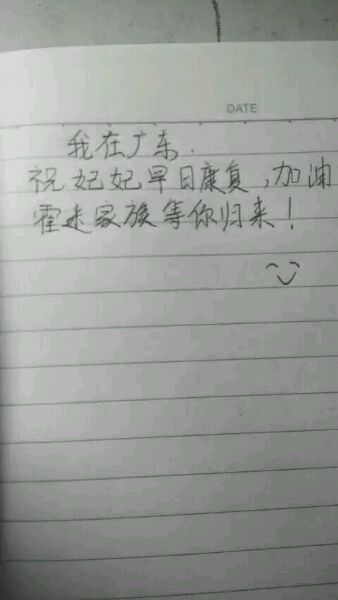 DATE
我在广东.
祝妃妃早日康复,加油
霍迷家族等你归来!